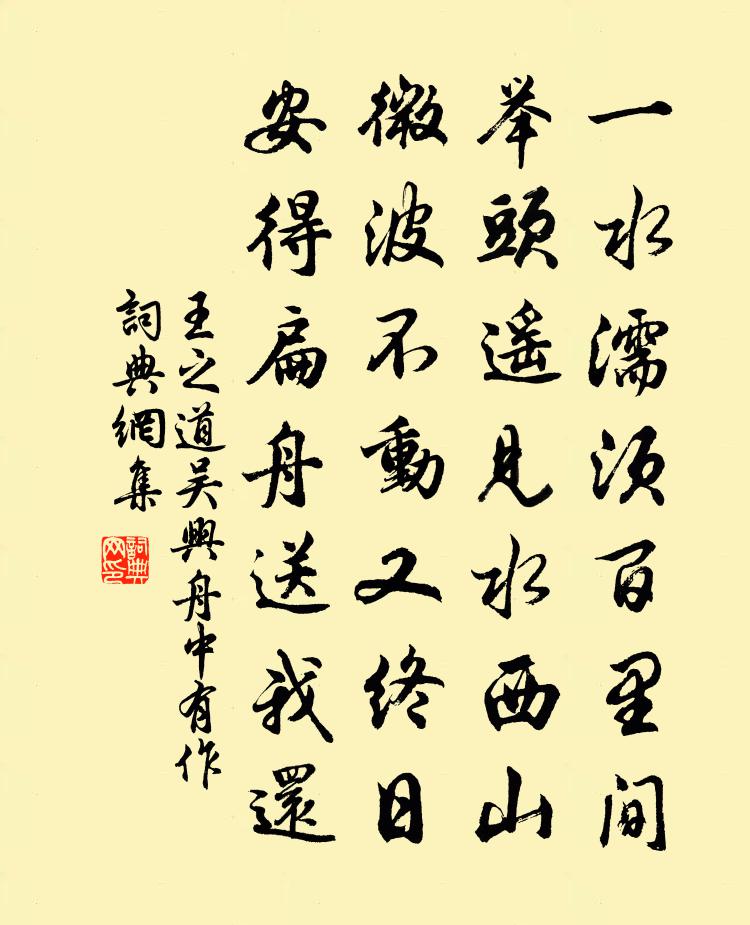 一水濡須百里間
举頭遥見水西山
微波不動又終日
安得扁舟送我還
王之道吴興舟中有作
詞典網集
詞典網印